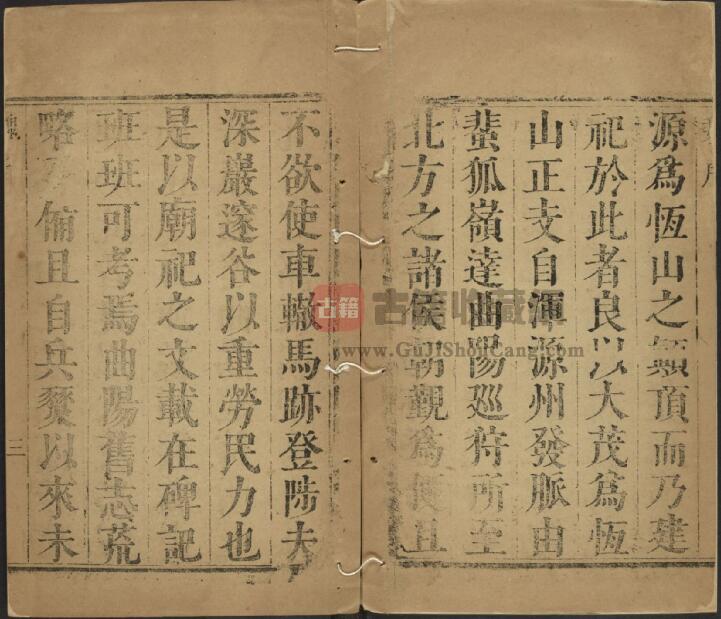 源爲恆山之巔頂而乃建
祀於此者良以大茂爲恆
山正支自渾源州發脈由
蜚狐嶺達曲陽廵狩所至
北方之諸侯朝覲爲便且
不欲使車轍馬跡登陟夫
深巖邃谷以重勞民力也
是以廟祀之文載在碑記
班班可考焉曲陽舊志荒
略 備且自兵燹以來未
二
古籍 古籍收藏
www.GuJiShouCang.com